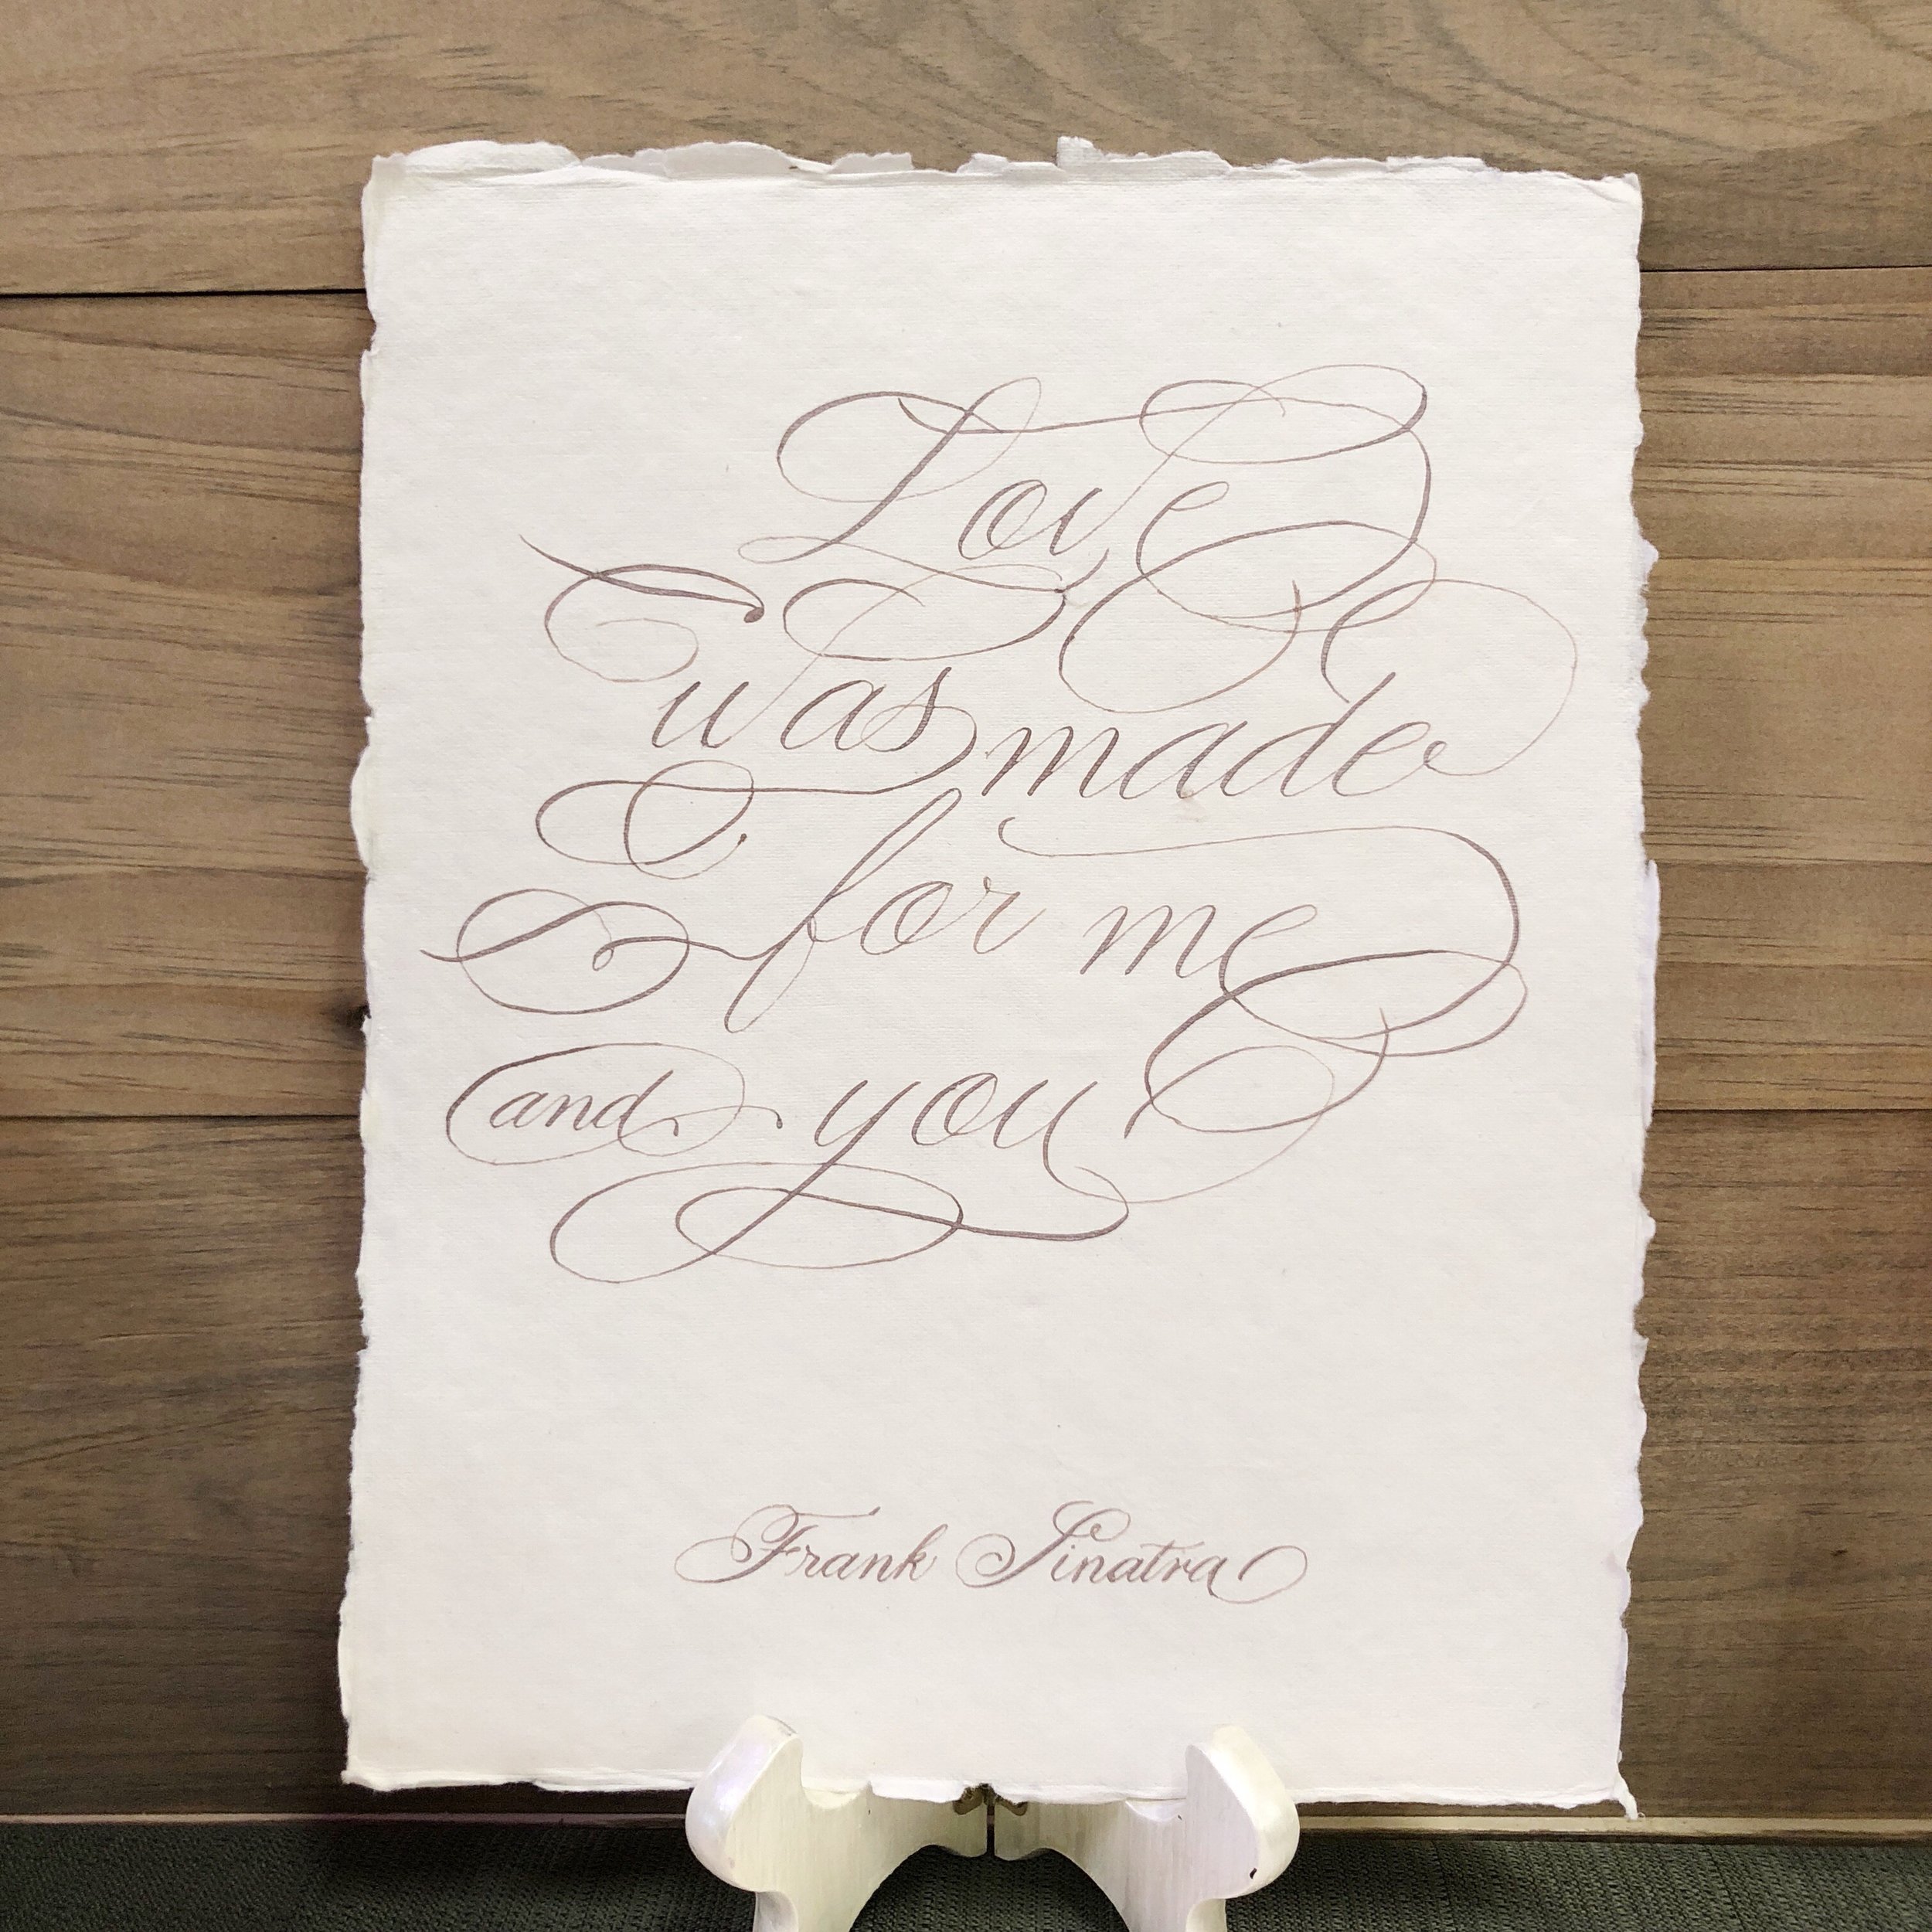 Love
was made
for me
and you
Frank Sinatra